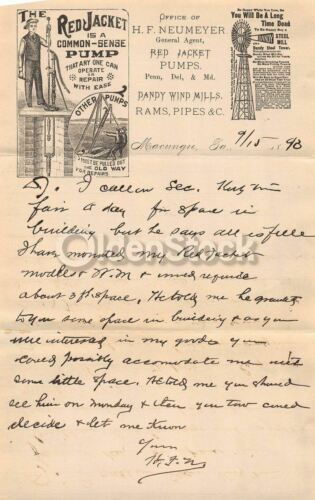 THE
RED JACKET
IS A
COMMON-SENSE
PUMP
THAT ANY ONE CAN
OPERATE
OR
REPAIR
WITH EASE
OTHER PUMPS
MUST BE PULLED OUT
THE OLD WAY
FOR REPAIRS
OFFICE OF
H. F. NEUMEYER.
General Agent,
RED JACKET
PUMPS.
Penn, Del, & Md.
DANDY WIND MILLS.
RAMS, PIPES &C.
You Will Be a Long
Time Dead
STEEL
MILL
Dandy Steel Tower.
Macungie, Pa. 9/15 1893
I call on Sec.
fair a day for space in
building but he says all is fille
I have mounted my Red Jacket
models & W.M & need
about 3 ft space, He told me he granted
to you some space in building & as you
are interested in my goods you
could possibly accomodate me with
some little space. He told me you should
see him on Monday & then you two could
decide & let me know
Yours
H. F. N
OldenStock